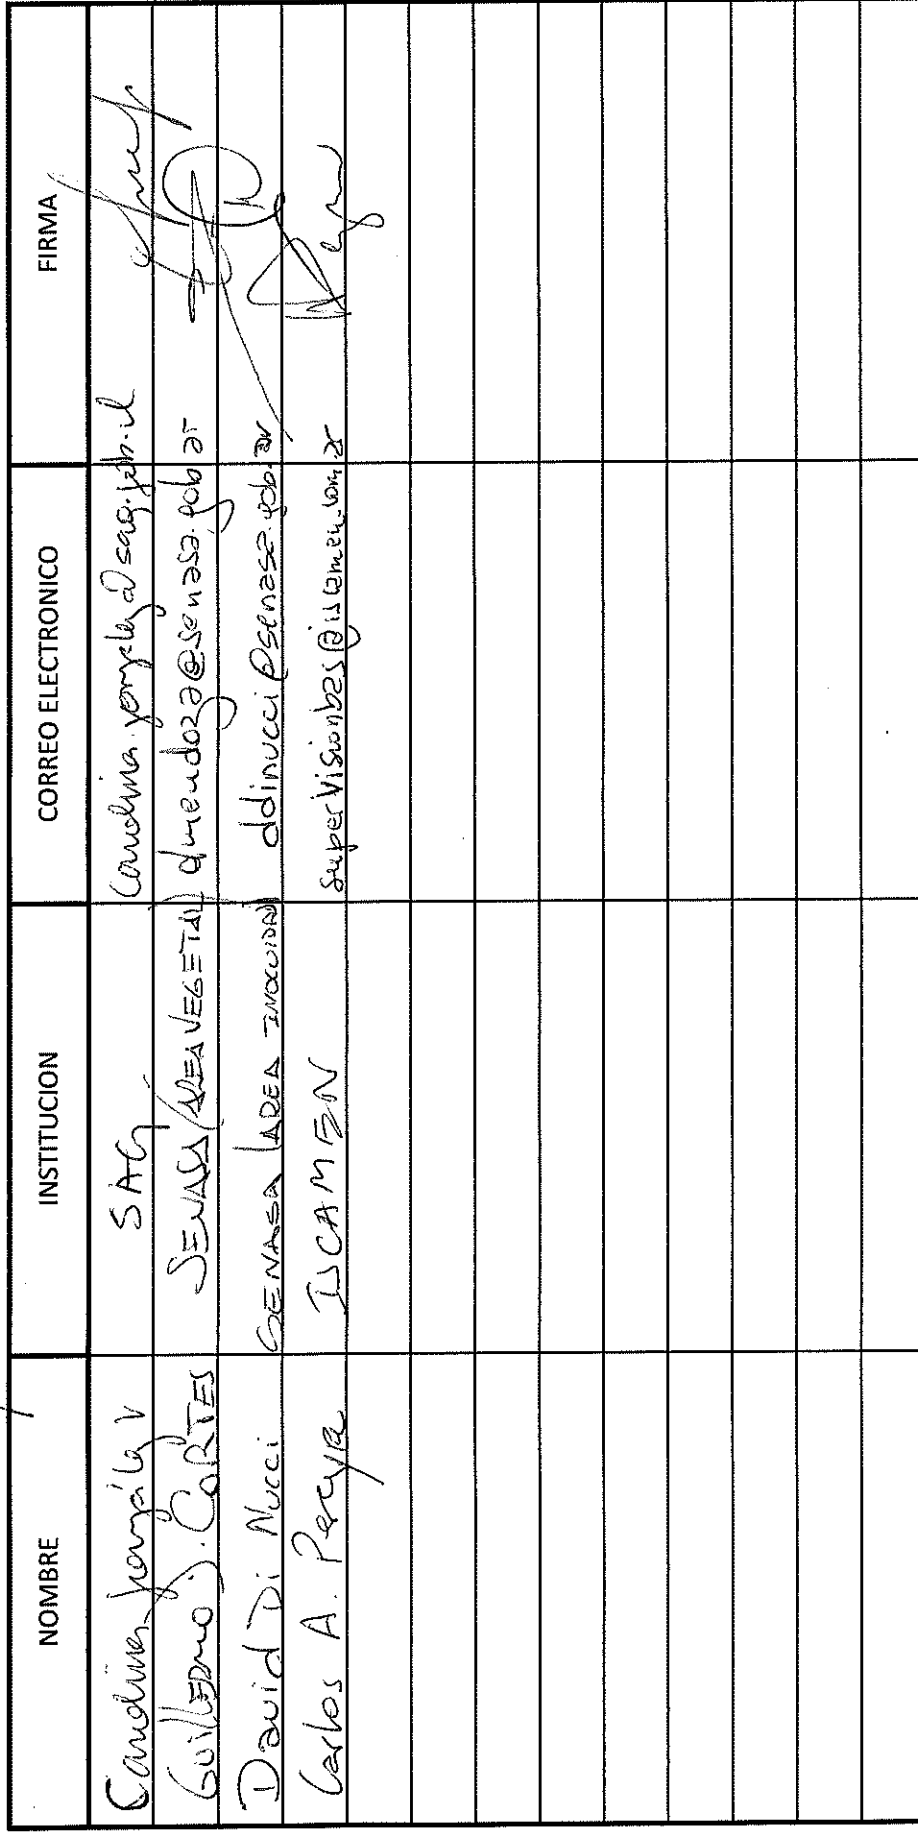 NOMBRE INSTITUCION CORREO ELECTRONICO FIRMA
Carolina González V SAG carolina.gonzalez@sag.gob.cl
Guillermo J. CORTES SENASA/AREA VEGETAL) dmendoza@senasa.gob ar
David Di Nucci SENASA (AREA INOCUIDAD) ddinucci@senasa.gob.ar
Carlos A. Pereyra ISCAMEN supervisionbas@iscamen.com.ar